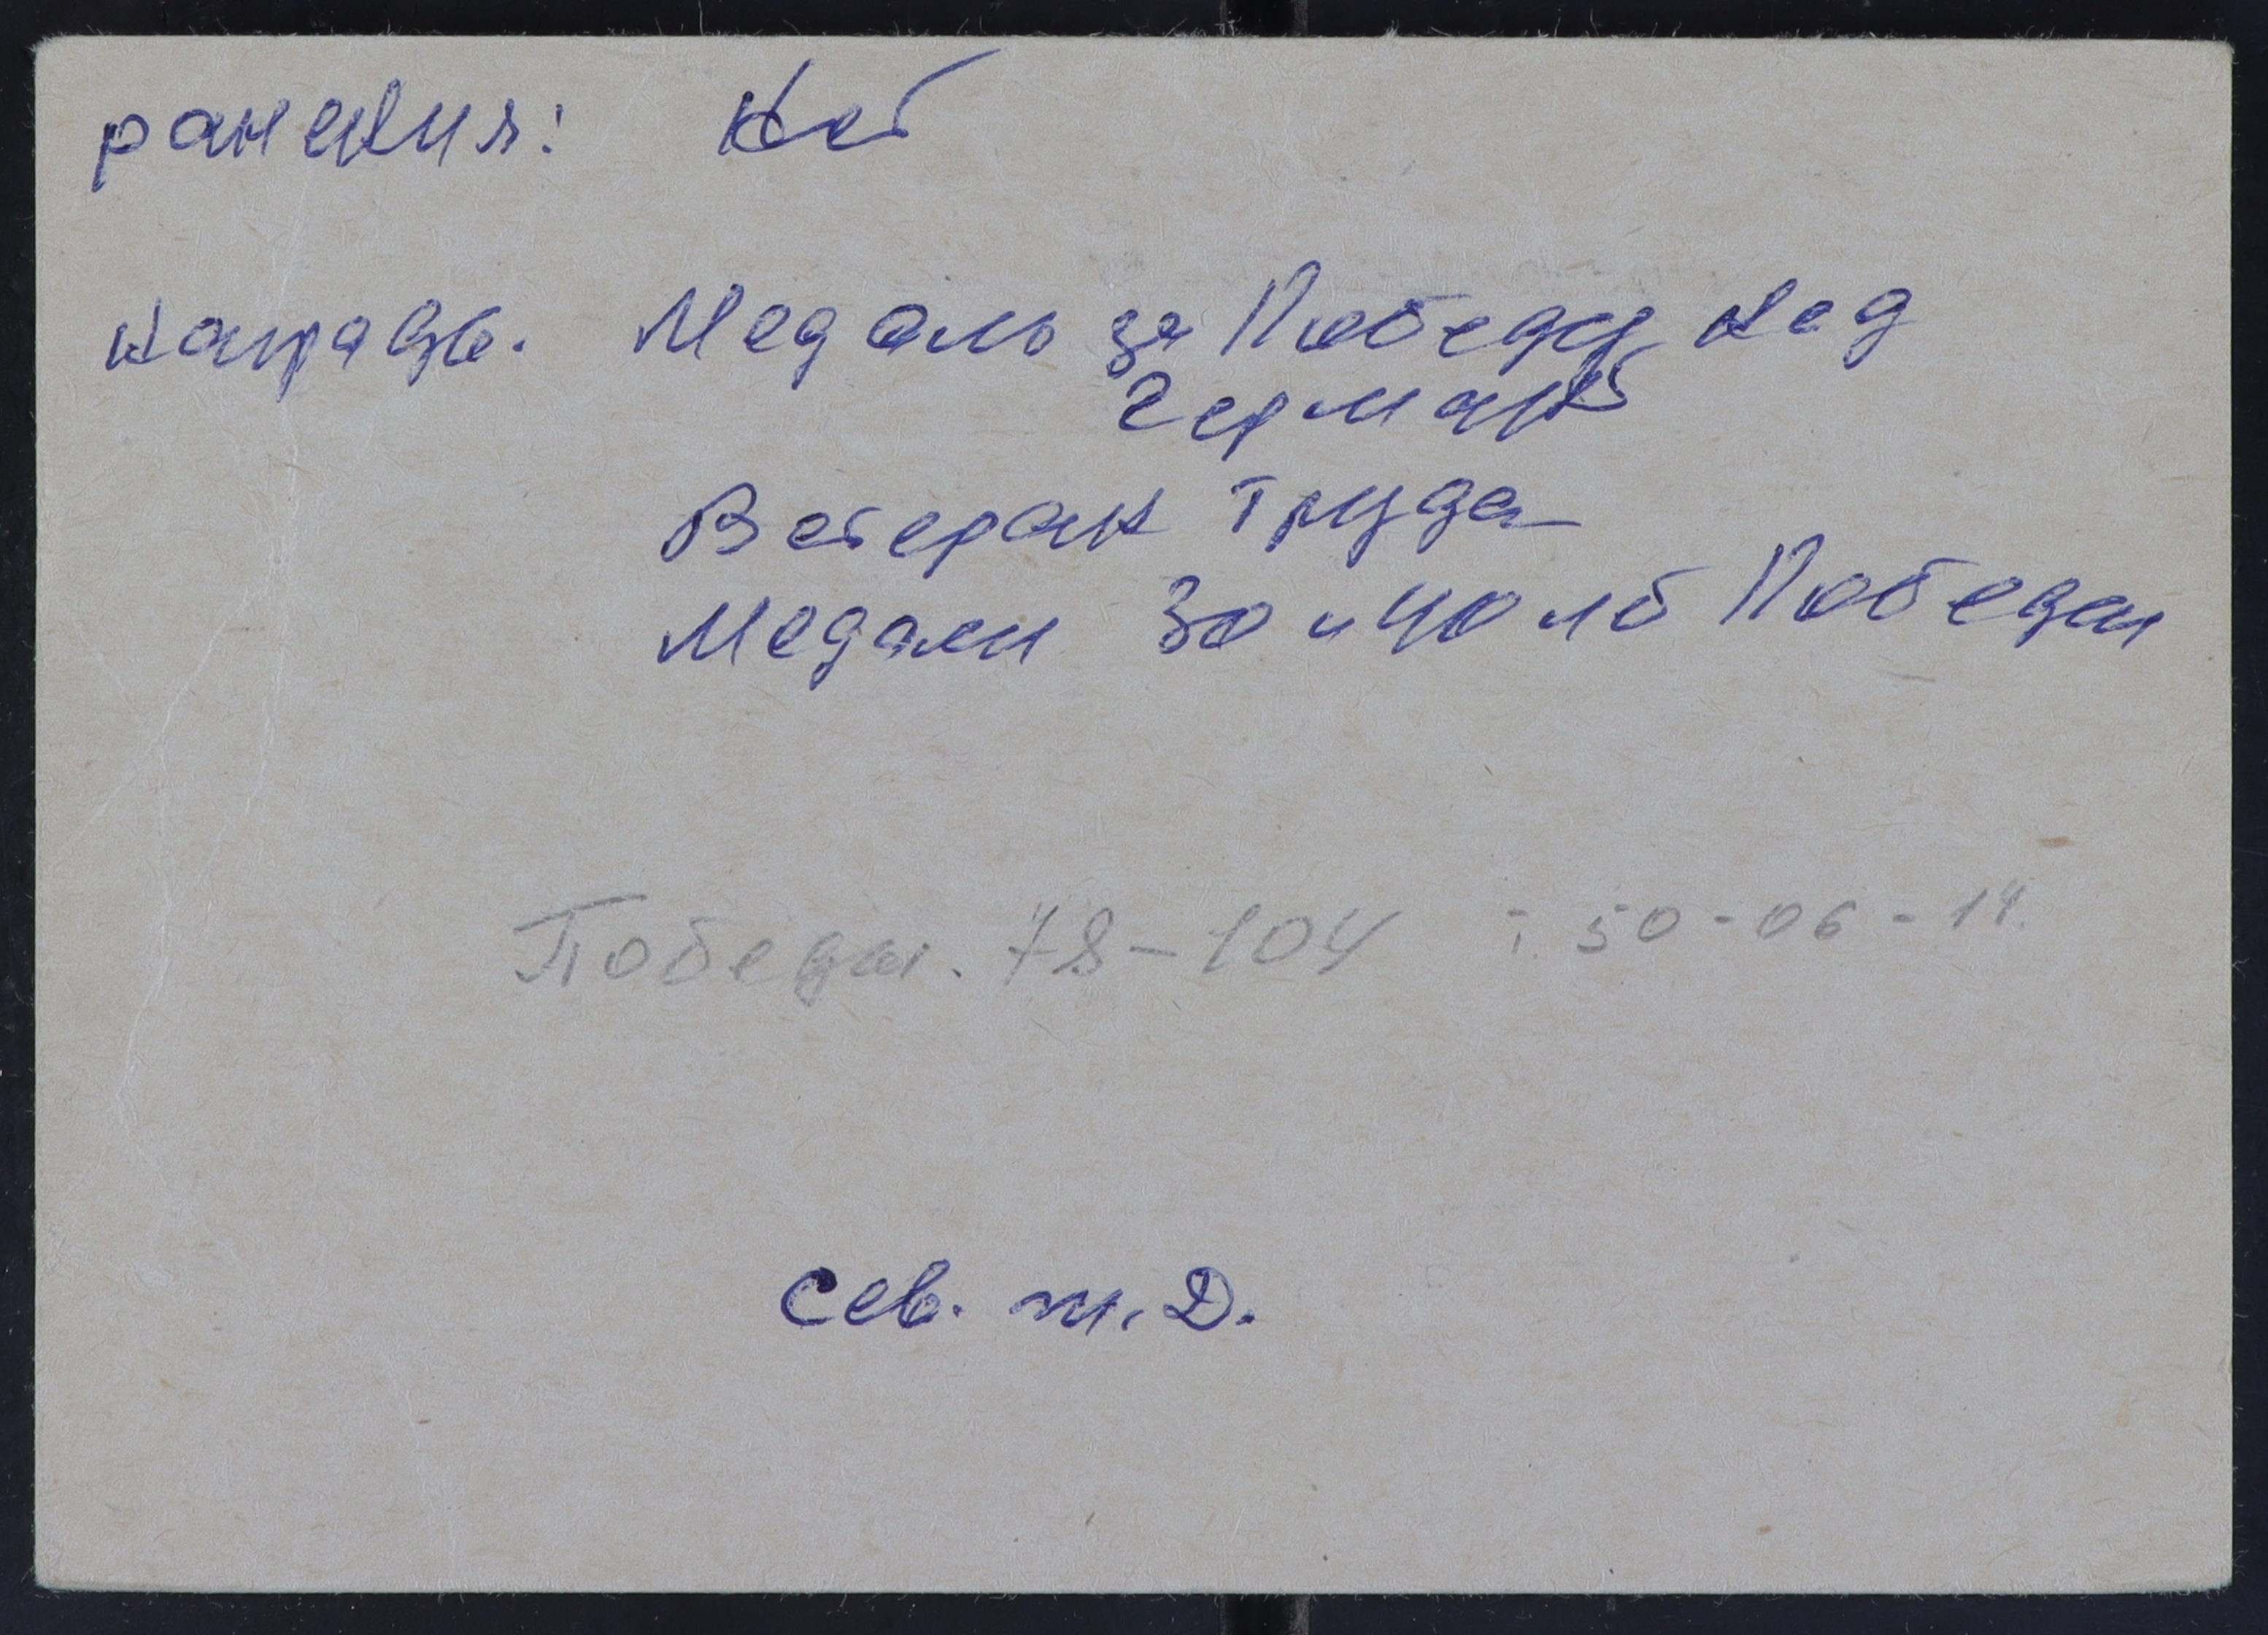 ранения: нет
награды. Медаль за Победу над
Герман
Ветеран труда
Медали 30 и 40 лет Победы
Победы. 78-104 т. 50-06-14.
Сев. ж. Д.